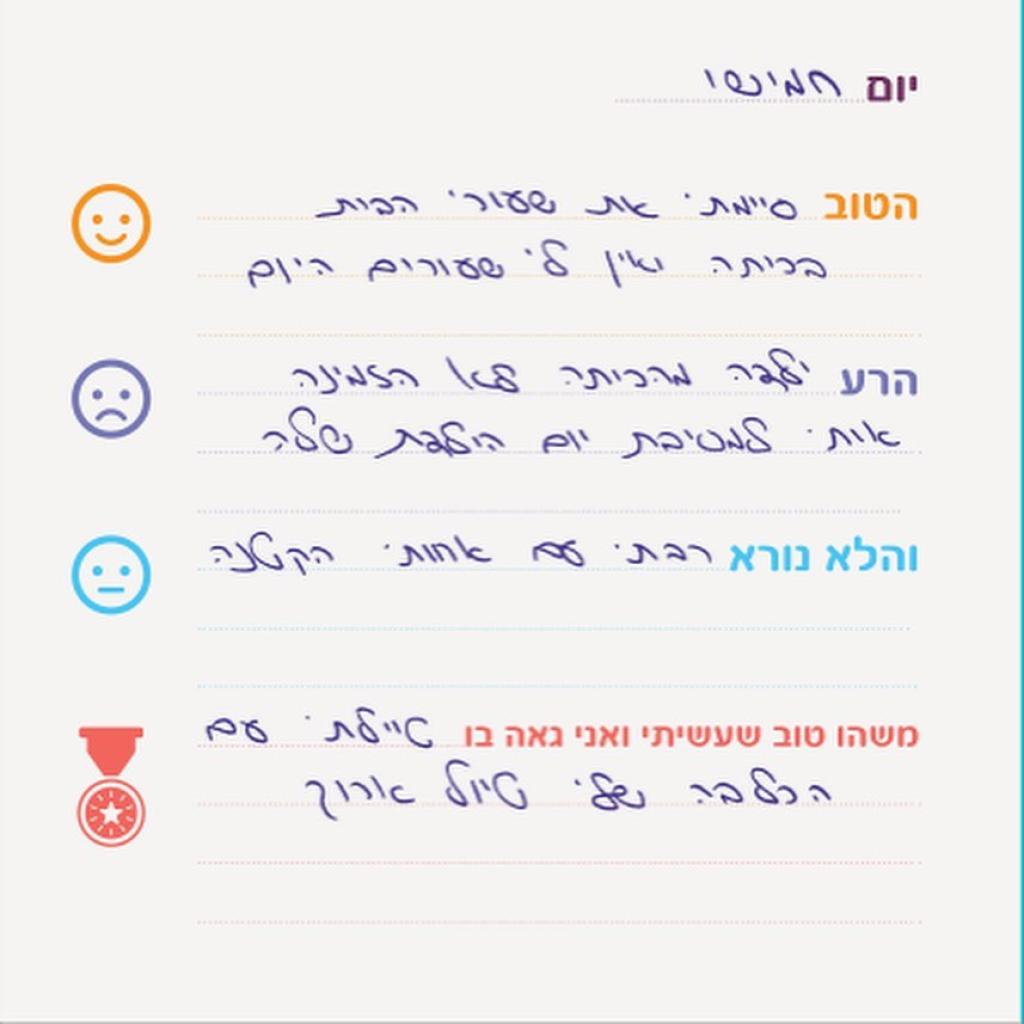 יום חמישי
הטוב סיימתי את שעורי הבית
בכיתה ואין לי שעורים היום
הרע ילדה מהכיתה לא הזמינה
אותי למסיבת יום הולדת שלה
והלא נורא רבתי עם אחותי הקטנה
משהו טוב שעשיתי ואני גאה בו טיילתי עם
הכלבה שלי טיול ארוך